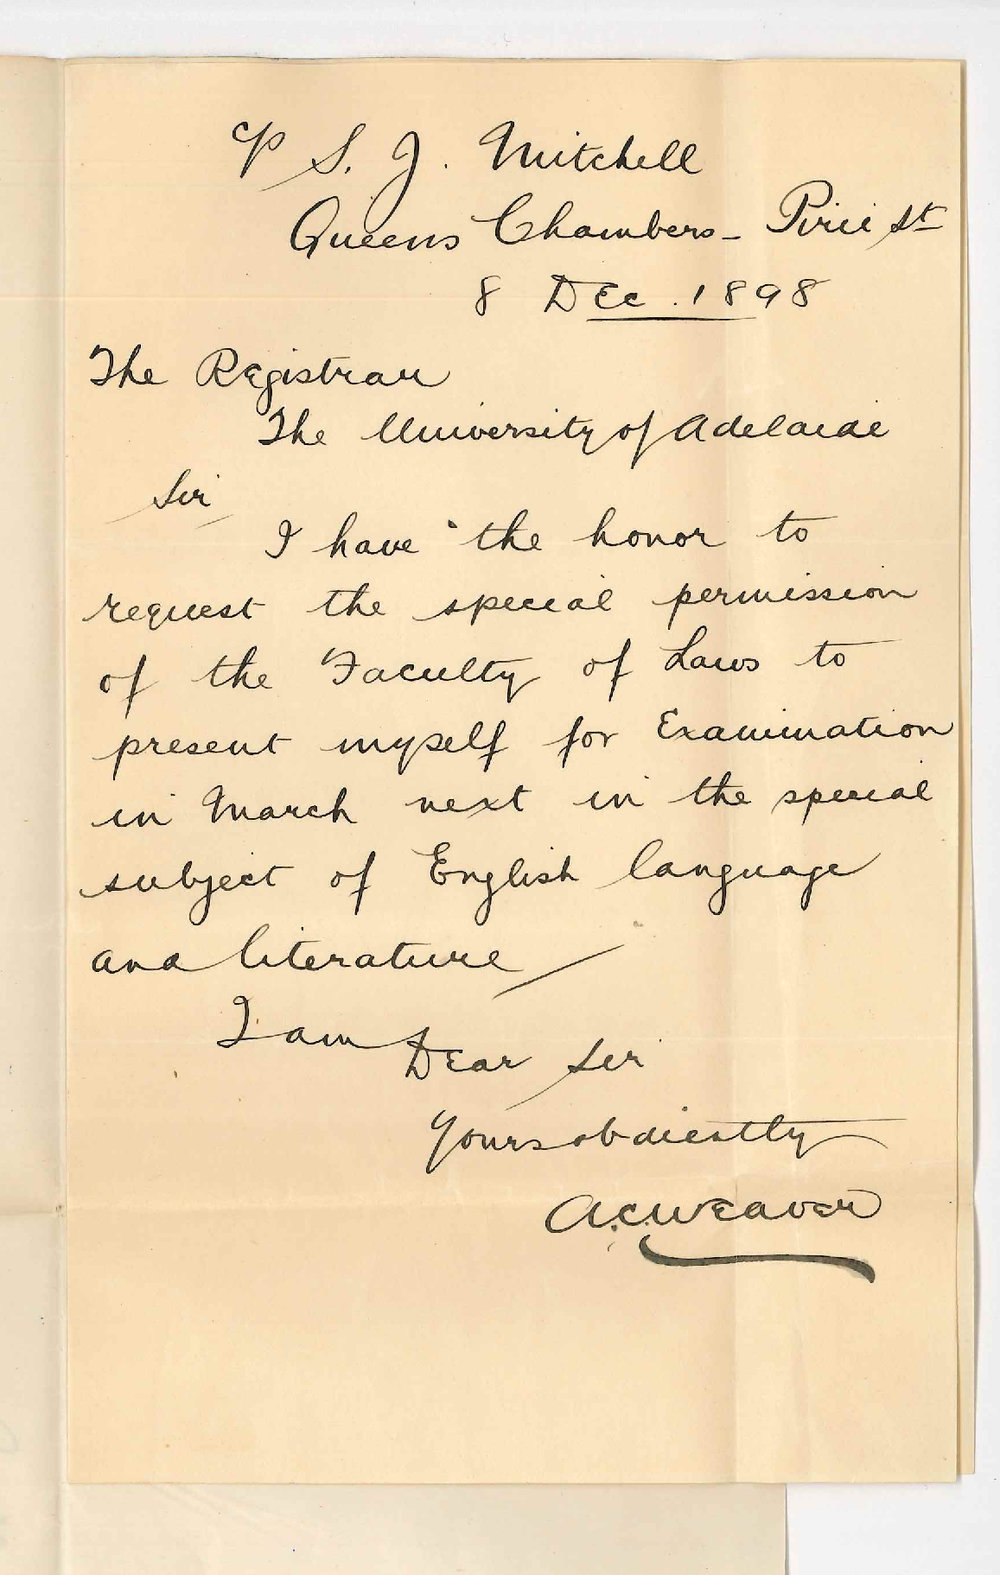 c/o S. J. Mitchell
Queens Chambers - Pirie St
8 Dec. 1898
The Registrar
The University of Adelaide
Sir
I have the honor to
request the special permission
of the Faculty of Laws to
present myself for Examination
in March next in the special
subject of English language
and literature
I am
Dear Sir
Yours obdiently
A.C. Weaver